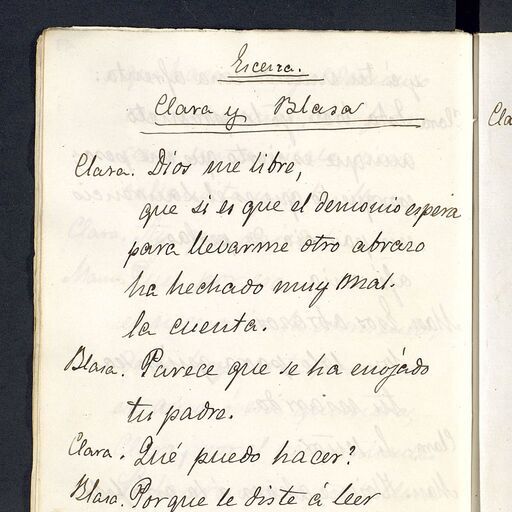 Escena.
Clara y Blasa
Clara. Dios me libre,
que si es que el demonio espera
para llevarme otro abrazo
ha hechado muy mal.
la cuenta.
Blasa. Parece que se ha enojádo
tu padre.
Clara. Qué puedo hacer?
Blasa. Porque le diste á leer
Cla